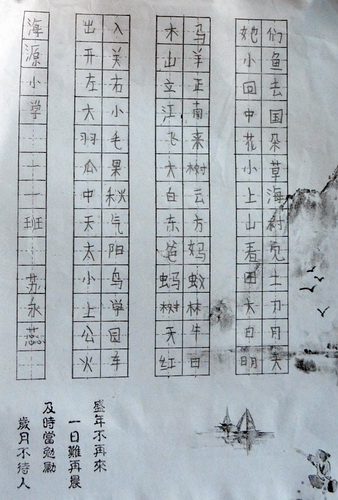 海源小学 一一班 苏永蕊
出入
开关
左右
大小
羽毛
瓜果
中秋
天气
太阳
小鸟
上学
公园
火车
木马
山羊
立正
江南
飞来
大树
白云
东方
爸妈
蚂蚁
树林
天牛
红日
她们
小鱼
回去
中国
花朵
小草
上海
山村
看见
田土
大刀
日月
明天
盛年不再來
一日難再晨
及時當勉勵
歲月不待人